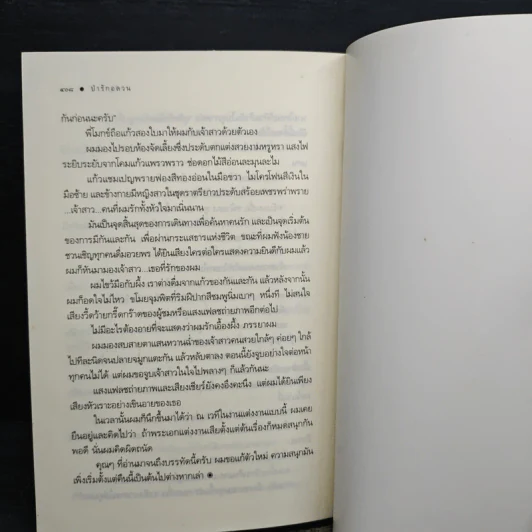 ๔๖๘ ● ป่ารักอลวน
กันก่อนนะครับ"
พี่โมกข์ถือแก้วสองใบมาให้ผมกับเจ้าสาวด้วยตัวเอง
ผมมองไปรอบห้องจัดเลี้ยงซึ่งประดับตกแต่งสวยงามหรูหรา แสงไฟ
ระยิบระยับจากโคมแก้วแพรวพราว ช่อดอกไม้สีอ่อนละมุนละไม
แก้วแชมเปญพรายฟองสีทองอ่อนในมือขวา ไมโครโฟนสีเงินใน
มือซ้าย และข้างกายมีหญิงสาวในชุดราตรียาวประดับสร้อยเพชรพร่าพราย
...เจ้าสาว...คนที่ผมรักทั้งหัวใจมาเนิ่นนาน
มันเป็นจุดสิ้นสุดของการเดินทางเพื่อค้นหาคนรัก และเป็นจุดเริ่มต้น
ของการมีกันและกัน เพื่อผ่านกระแสธารแห่งชีวิต ขณะที่ผมฟังน้องชาย
ชวนเชิญทุกคนดื่มอวยพร ได้ยินเสียงใครต่อใครแสดงความยินดีกับผมแล้ว
ผมก็หันมามองเจ้าสาว...เธอที่รักของผม
ผมไขว้มือกับผึ้ง เราต่างดื่มจากแก้วของกันและกัน แล้วหลังจากนั้น
ผมก็อดใจไม่ไหว ขโมยจุมพิตที่ริมฝีปากสีชมพูนิ่มเบาๆ หนึ่งที ไม่สนใจ
เสียงวี้ดว้ายกรี๊ดกร๊าดของผู้ชมหรือแสงแฟลชถ่ายภาพอีกต่อไป
ไม่มีอะไรต้องอายที่จะแสดงว่าผมรักเอื้องผึ้ง ภรรยาผม
ผมมองสบสายตาแสนหวานฉ่ำของเจ้าสาวคนสวยใกล้ๆ ค่อยๆ ใกล้
ไปทีละนิดจนปลายจมูกแตะกัน แล้วหลับตาลง ตอนนี้ยังจูบอย่างใจต่อหน้า
ทุกคนไม่ได้ แต่ผมขอจูบเจ้าสาวในใจไปพลางๆ ก็แล้วกันนะ
แสงแฟลชถ่ายภาพและเสียงเชียร์ยังคงอึงคะนึง แต่ผมได้ยินเพียง
เสียงหัวเราะอย่างเขินอายของเธอ
ในเวลานั้นผมก็นึกขึ้นมาได้ว่า ณ เวทีในงานแต่งงานแบบนี้ ผมเคย
ยืนอยู่และคิดไปว่า ถ้าพระเอกแต่งงานเสียตั้งแต่ต้นเรื่องก็หมดสนุกกัน
พอดี นั่นผมคิดผิดถนัด
คุณๆ ที่อ่านมาจนถึงบรรทัดนี้ครับ ผมขอแก้ตัวใหม่ ความสนุกมัน
เพิ่งเริ่มตั้งแต่คืนนี้เป็นต้นไปต่างหากเล่า